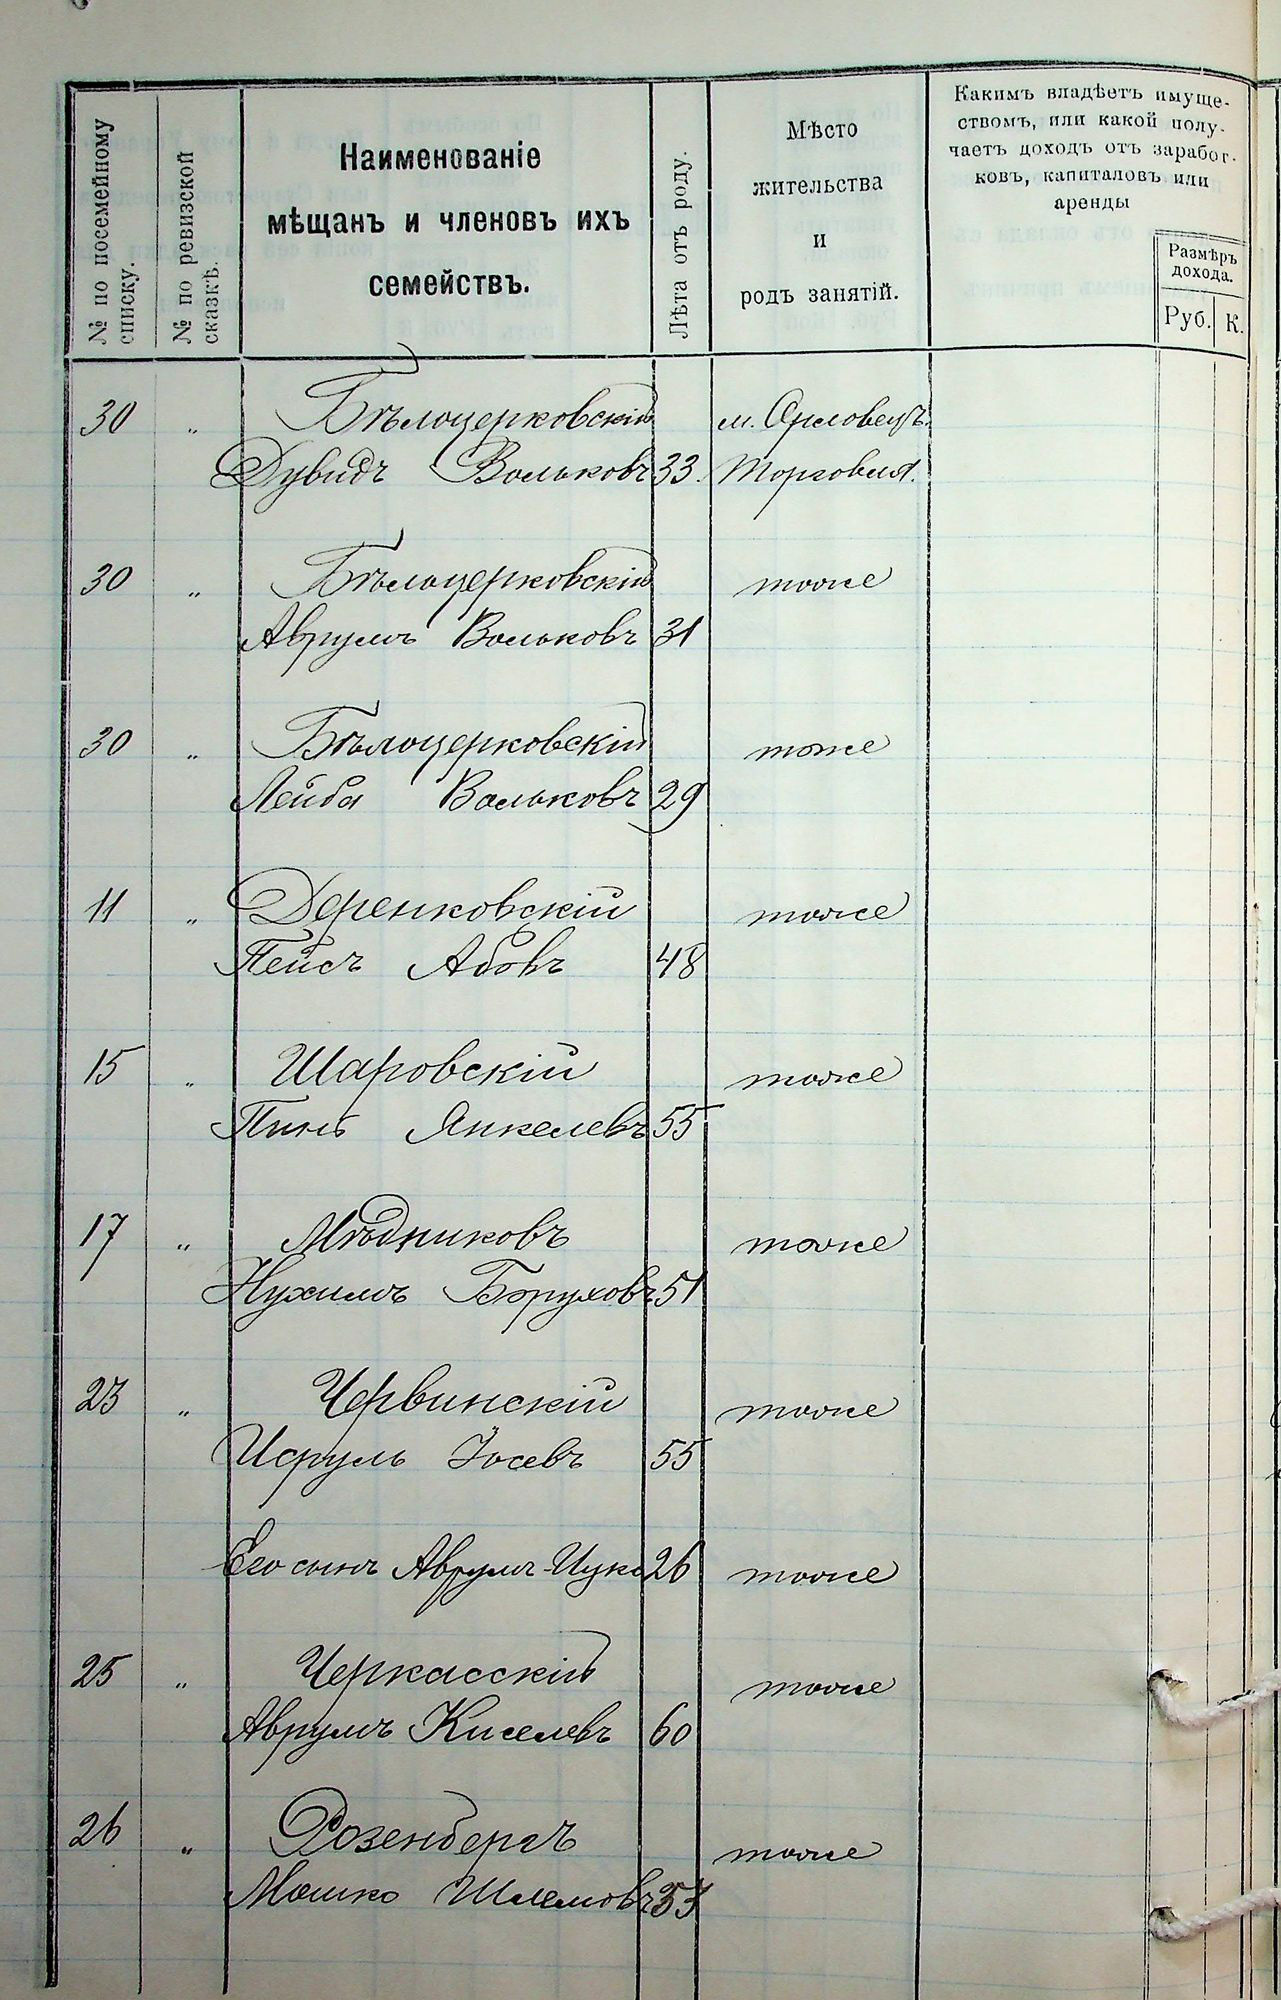 № по посемейному списку.
№ по ревизской сказкѣ.
Наименованіе
мѣщанъ и членовъ ихъ
семействъ.
Лѣта отъ роду.
Мѣсто
жительства
и
родъ занятій.
Какимъ владѣетъ имуще-
ствомъ, или какой полу-
чаетъ доходъ отъ заработ-
ковъ, капиталовъ или
аренды
Размѣръ
дохода.
Руб. К.
30 " Бѣлоцерковскій м. Орловецъ.
Дувидъ Вольковъ 33. Торговля.
30 " Бѣлоцерковскій тоже
Аврумъ Вольковъ 31
30 " Бѣлоцерковскій тоже
Лейба Вольковъ 29
11 " Деренковскій тоже
Пейсъ Абовъ 48
15 " Шаровскій тоже
Пинь Янкелевъ 55
17 " Мѣдниковъ тоже
Нухимъ Боруховъ 51
23 " Червинскій тоже
Исруль Іосевъ 55
Его сынъ Аврумъ-Ицко 26 тоже
25 " Черкасскій тоже
Аврумъ Киселевъ 60
26 " Розенбергъ тоже
Мошко Шлемовъ